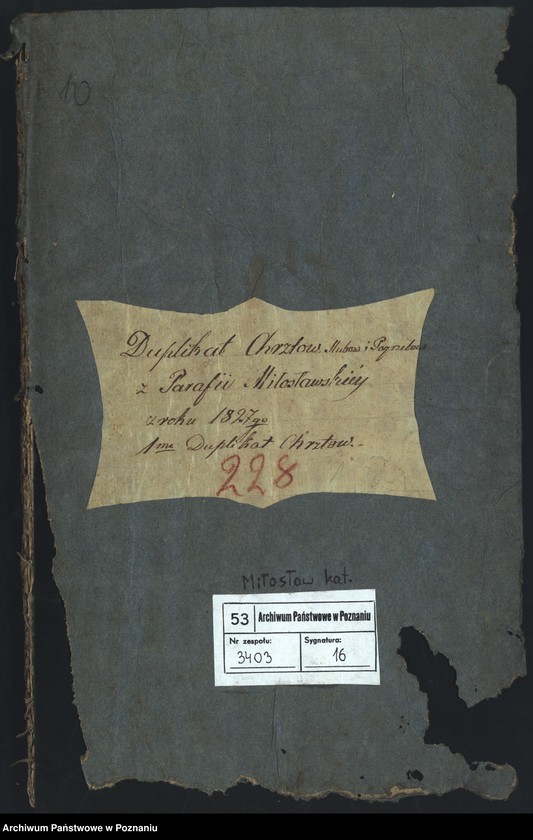 10
Duplikat Chrztow Slubow i Pogrzebow
z Parafii Miłosławskiéy
z roku 1827go
1mo Duplikat Chrztow.-
228
Miłosław kat.
53 Archiwum Państwowe w Poznaniu
Nr zespołu: Sygnatura:
3403 16
Archiwum Państwowe w Poznaniu